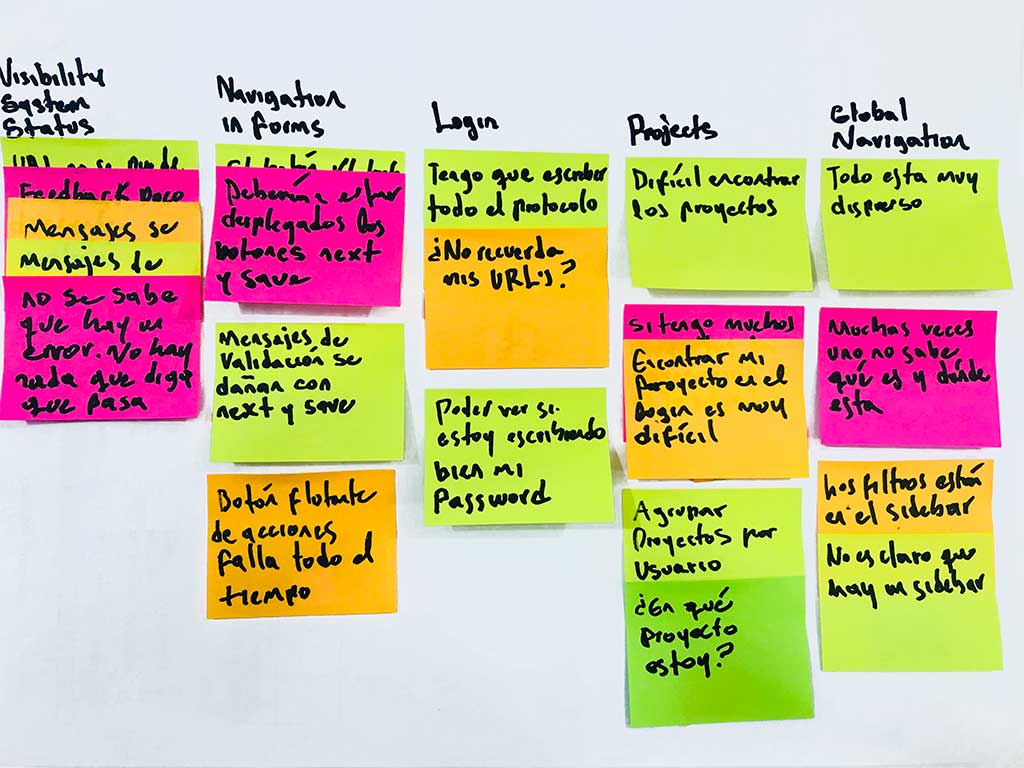 Visibility
System
Status
URL no se puede
Feedback poco
Mensajes se
Mensajes de
no se sabe
que hay un
error. No hay
nada que diga
que pasa
Navigation
in forms
Debería estar
desplegados los
botones next
y save
Mensajes de
Validación se
dañan con
next y save
Botón flotante
de acciones
falla todo el
tiempo
Login
Tengo que escribir
todo el protocolo
¿No recuerda
mis URL's?
Poder ver si
estoy escribiendo
bien mi
Password
Projects
Difícil encontrar
los proyectos
Si tengo muchos
Encontrar mi
proyecto en el
login es muy
difícil
Agrupar
Proyectos por
Usuario
¿En qué
proyecto
estoy?
Global
Navigation
Todo esta muy
disperso
Muchas veces
uno no sabe
qué es y dónde
esta
Los filtros están
en el sidebar
No es claro que
hay un sidebar